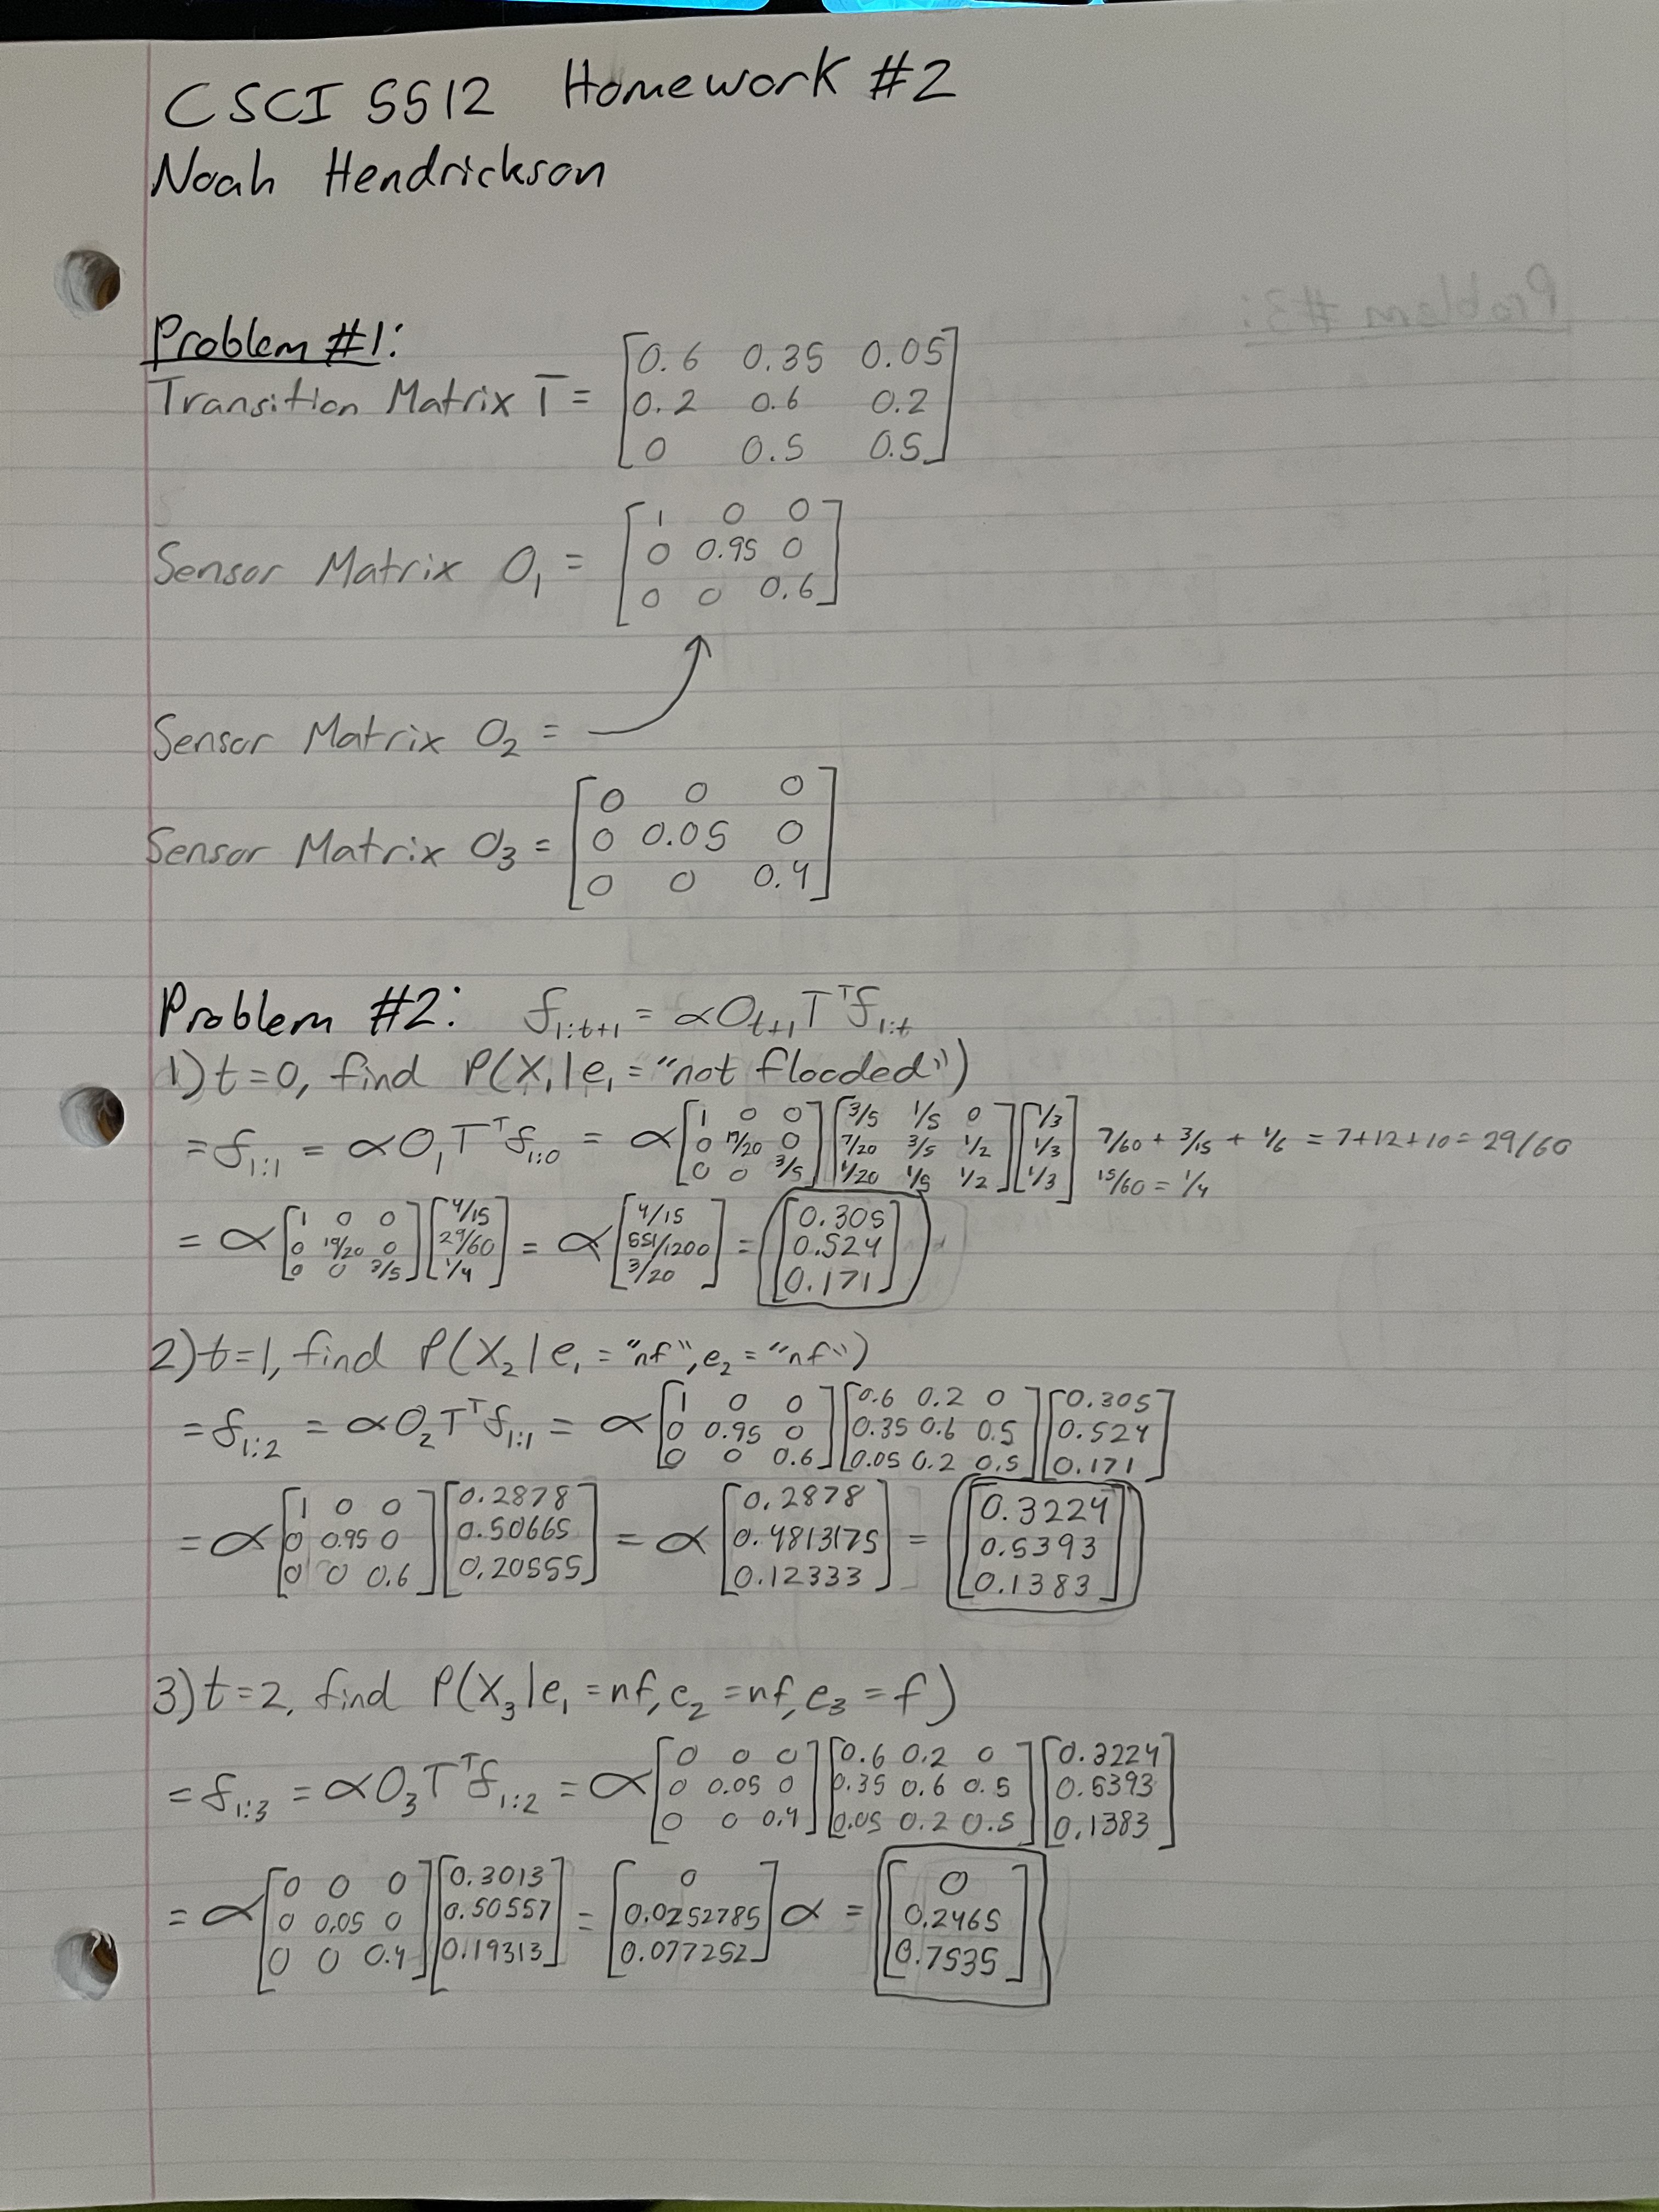 CSCI 5512 Homework #2
Noah Hendrickson
Problem #3:
Problem #1:
Transition Matrix T = [0.6 0.35 0.05
0.2 0.6 0.2
0 0.5 0.5]
Sensor Matrix O₁ = [1 0 0
0 0.95 0
0 0 0.6]
Sensor Matrix O₂ =
Sensor Matrix O₃ = [0 0 0
0 0.05 0
0 0 0.4]
Problem #2: f₁:t+1 = αOt+1 Tᵀf₁:t
1) t=0, find P(X₁|e₁ = "not flooded")
= f₁:₁ = αO₁Tᵀf₁:₀ = α[1 0 0; 0 19/20 0; 0 0 3/5][3/5 1/5 0; 7/20 3/5 1/2; 1/20 1/5 1/2][1/3; 1/3; 1/3] 7/60 + 3/15 + 1/6 = 7+12+10 = 29/60
15/60 = 1/4
= α[1 0 0; 0 19/20 0; 0 0 3/5][4/15; 29/60; 1/4] = α[4/15; 551/1200; 3/20] = [0.305; 0.524; 0.171]
2) t=1, find P(X₂|e₁ = "nf", e₂ = "nf")
= f₁:₂ = αO₂Tᵀf₁:₁ = α[1 0 0; 0 0.95 0; 0 0 0.6][0.6 0.2 0; 0.35 0.6 0.5; 0.05 0.2 0.5][0.305; 0.524; 0.171]
= α[1 0 0; 0 0.95 0; 0 0 0.6][0.2878; 0.50665; 0.20555] = α[0.2878; 0.4813175; 0.12333] = [0.3224; 0.5393; 0.1383]
3) t=2, find P(X₃|e₁ = nf, e₂ = nf, e₃ = f)
= f₁:₃ = αO₃Tᵀf₁:₂ = α[0 0 0; 0 0.05 0; 0 0 0.4][0.6 0.2 0; 0.35 0.6 0.5; 0.05 0.2 0.5][0.3224; 0.5393; 0.1383]
= α[0 0 0; 0 0.05 0; 0 0 0.4][0.3013; 0.50557; 0.19313] = [0; 0.0252785; 0.077252]α = [0; 0.2465; 0.7535]